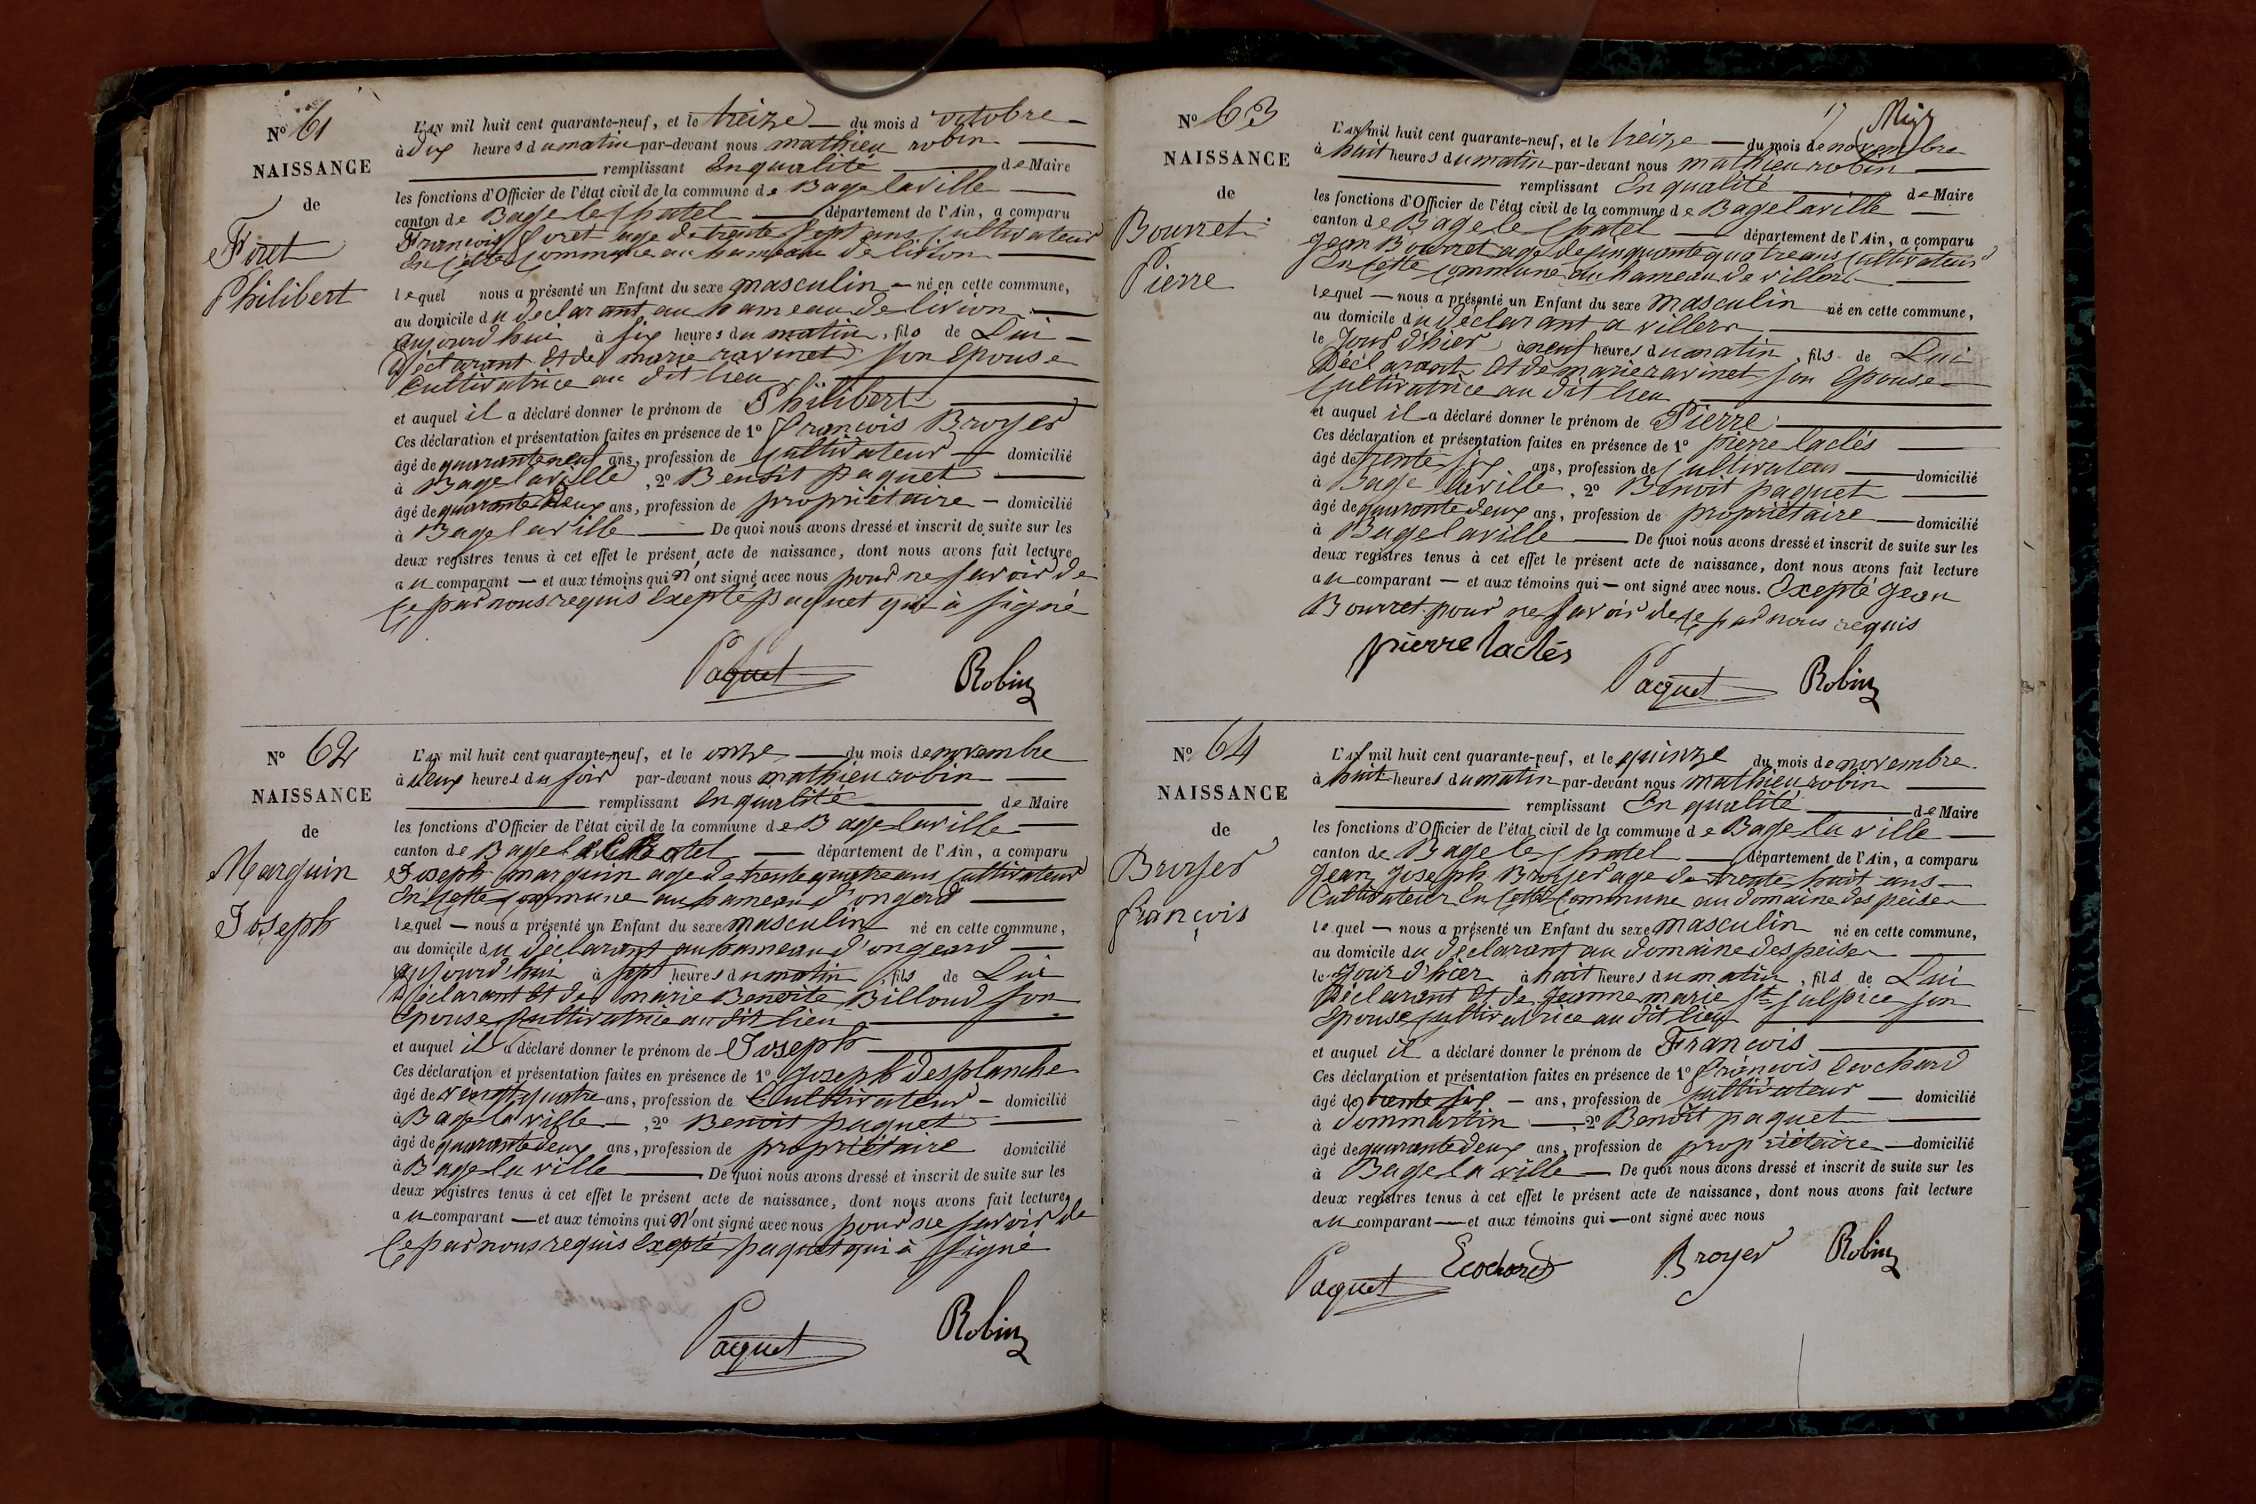 Nº 61
NAISSANCE
de
Foret
Philibert
L'AN mil huit cent quarante-neuf, et le treize — du mois d'octobre —
à dix heures du matin par-devant nous mathieu robin —
remplissant En qualité — de Maire
les fonctions d'Officier de l'état civil de la commune de Bagelaville —
canton de Bagelechatel — département de l'Ain, a comparu
François foret age de trente sept ans Cultivateur
En Cette Commune au hameau de livion —
lequel nous a présenté un Enfant du sexe masculin — né en cette commune,
au domicile du declarant au hameau de livion —
aujourd'hui à six heures du matin, fils de Lui —
Déclarant Et de marie ravinet son Epouse
Cultivatrice au dit lieu —
et auquel il a déclaré donner le prénom de Philibert —
Ces déclaration et présentation faites en présence de 1º françois Broyer
âgé de quarante neuf ans, profession de Cultivateur — domicilié
à Bagelaville, 2º Benoit paquet —
âgé de quarante Deux ans, profession de propriétaire — domicilié
à Bagelaville — De quoi nous avons dressé et inscrit de suite sur les
deux registres tenus à cet effet le présent acte de naissance, dont nous avons fait lecture
au comparant — et aux témoins qui n'ont signé avec nous pour ne savoir de
Ce par nous requis Exepté paquet qui à signé
Paquet Robin
Nº 62
NAISSANCE
de
Marguin
Joseph
L'AN mil huit cent quarante-neuf, et le onze — du mois de novembre
à deux heures du soir par-devant nous mathieu robin —
remplissant En qualité — de Maire
les fonctions d'Officier de l'état civil de la commune de Bagelaville —
canton de Bage le Chatel — département de l'Ain, a comparu
Joseph marguin age de trente quatre ans Cultivateur
En Cette Commune au hameau d'ongeard —
lequel — nous a présenté un Enfant du sexe masculin né en cette commune,
au domicile du déclarant au hameau d'ongeard —
aujourd'hui à sept heures du matin, fils de Lui
Déclarant Et de marie Benoite Billoud son
Epouse Cultivatrice au dit lieu —
et auquel il a déclaré donner le prénom de Joseph —
Ces déclaration et présentation faites en présence de 1º Joseph desplanche
âgé de vengt quatre ans, profession de Cultivateur — domicilié
à Bagelaville —, 2º Benoit paquet —
âgé de quarante deux ans, profession de propriétaire domicilié
à Bagelaville — De quoi nous avons dressé et inscrit de suite sur les
deux registres tenus à cet effet le présent acte de naissance, dont nous avons fait lecture
au comparant — et aux témoins qui n'ont signé avec nous pour ne savoir de
Ce par nous requis Exepté paquet qui à signé
Paquet Robin
17
Nº 63
NAISSANCE
de
Bourret
Pierre
L'AN mil huit cent quarante-neuf, et le treize — du mois de novembre
à huit heures du matin par-devant nous mathieu robin —
remplissant En qualité — de Maire
les fonctions d'Officier de l'état civil de la commune de Bagelaville —
canton de Bage le Chatel — département de l'Ain, a comparu
Jean Bourret age de Cinquante quatre ans Cultivateur
En Cette Commune au hameau de villers —
lequel — nous a présenté un Enfant du sexe masculin né en cette commune,
au domicile du déclarant a villers —
le Jour d'hier à neuf heures du matin, fils de Lui
Déclarant Et de marie ravinet son Epouse —
Cultivatrice au dit lieu —
et auquel il a déclaré donner le prénom de Pierre —
Ces déclaration et présentation faites en présence de 1º pierre laclés —
âgé de trente six ans, profession de Cultivateur — domicilié
à Bage laville, 2º Benoit paquet —
âgé de quarante deux ans, profession de propriétaire — domicilié
à Bagelaville — De quoi nous avons dressé et inscrit de suite sur les
deux registres tenus à cet effet le présent acte de naissance, dont nous avons fait lecture
au comparant — et aux témoins qui — ont signé avec nous. Exepté Jean
Bourret pour ne savoir de ce par nous requis
pierre laclés
Paquet Robin
Nº 64
NAISSANCE
de
Broyer
françois
L'AN mil huit cent quarante-neuf, et le quinze du mois de novembre.
à huit heures du matin par-devant nous mathieu robin —
remplissant En qualité — de Maire
les fonctions d'Officier de l'état civil de la commune de Bage la ville —
canton de Bage le Chatel — département de l'Ain, a comparu
Jean Joseph Broyer age de trente huit ans —
Cultivateur En Cette Commune au domaine des peiser
lequel — nous a présenté un Enfant du sexe masculin né en cette commune,
au domicile du déclarant au domaine des peiser —
le Jour d'hier à huit heures du matin, fils de Lui
Déclarant Et de Jeanne marie St sulpice son
Epouse Cultivatrice au dit lieu —
et auquel il a déclaré donner le prénom de François —
Ces déclaration et présentation faites en présence de 1º françois Ecochard
âgé de trente six — ans, profession de Cultivateur — domicilié
à dommartin —, 2º Benoit paquet —
âgé de quarante deux ans, profession de propriétaire — domicilié
à Bage la ville — De quoi nous avons dressé et inscrit de suite sur les
deux registres tenus à cet effet le présent acte de naissance, dont nous avons fait lecture
au comparant — et aux témoins qui — ont signé avec nous
Paquet Ecochard Broyer Robin